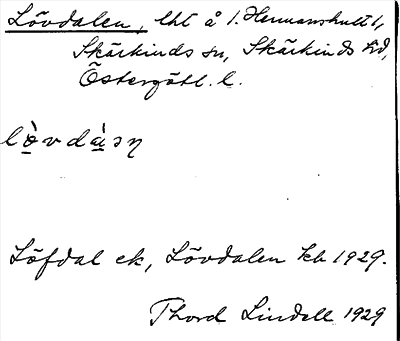 Lövdalen, lht å 1. Hermanshult 1,
Skärkinds sn, Skärkinds hd,
Östergötl. l.
lòvdàƨn
Löfdal ek, Lövdalen kb 1929.
Thord Lindell 1929